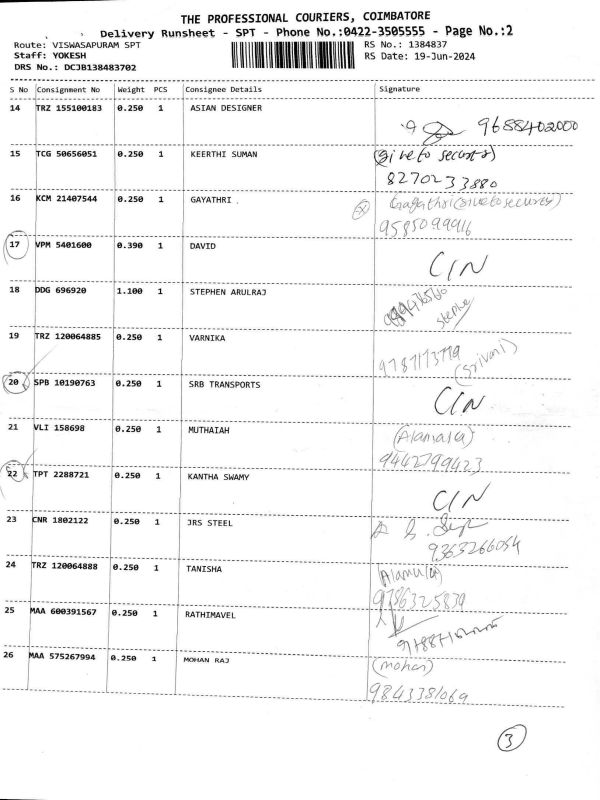 THE PROFESSIONAL COURIERS, COIMBATORE
Delivery Runsheet - SPT - Phone No.:0422-3505555 - Page No.:2
Route: VISWASAPURAM SPT RS No.: 1384837
Staff: YOKESH RS Date: 19-Jun-2024
DRS No.: DCJB138483702
S No Consignment No Weight PCS Consignee Details Signature
14 TRZ 155100183 0.250 1 ASIAN DESIGNER
9688402000
15 TCG 50656051 0.250 1 KEERTHI SUMAN (Give to security)
8270233880
16 KCM 21407544 0.250 1 GAYATHRI . Gagathri (Give to security)
9585099916
17 VPM 5401600 0.390 1 DAVID
C/N
18 DDG 696920 1.100 1 STEPHEN ARULRAJ
Stephe
19 TRZ 120064885 0.250 1 VARNIKA
9787173779 (Srivani)
20 SPB 10190763 0.250 1 SRB TRANSPORTS
C/N
21 VLI 158698 0.250 1 MUTHAIAH (Alamala)
9442799423
22 TPT 2288721 0.250 1 KANTHA SWAMY
C/N
23 CNR 1802122 0.250 1 JRS STEEL
9363266054
24 TRZ 120064888 0.250 1 TANISHA Alamu(a)
9786325839
25 MAA 600391567 0.250 1 RATHIMAVEL
26 MAA 575267994 0.250 1 MOHAN RAJ (mohan)
9843381069
3